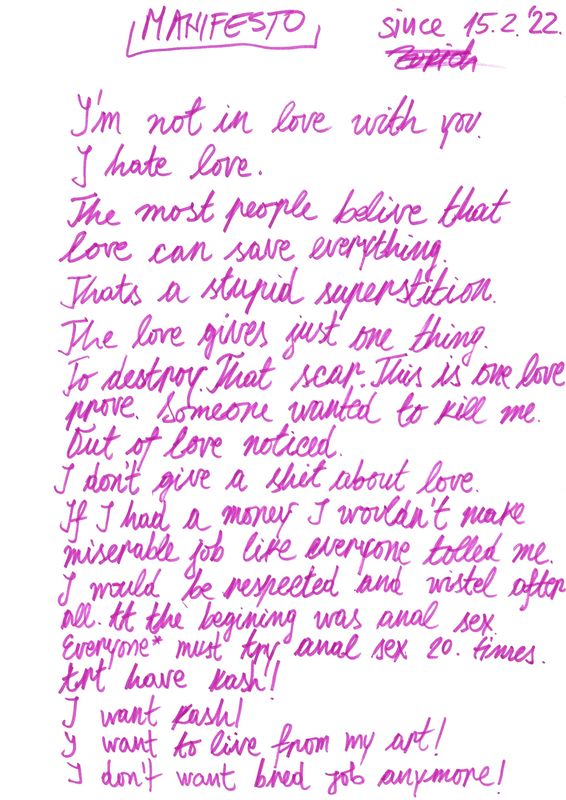 MANIFESTO
since 15.2.'22.
Zurich
I'm not in love with you.
I hate love.
The most people belive that
love can save everything.
Thats a stupid superstition.
The love gives just one thing.
To destroy. That scar. This is one love
prove. Someone wanted to kill me.
Out of love noticed.
I don't give a shit about love.
If I had a money I wouldn't make
miserable job like everyone tolled me.
I would be respected and wistel after
all. At the begining was anal sex.
Everyone* must try anal sex 20. times.
have kash!
I want kash!
I want to live from my art!
I don't want bred job anymore!